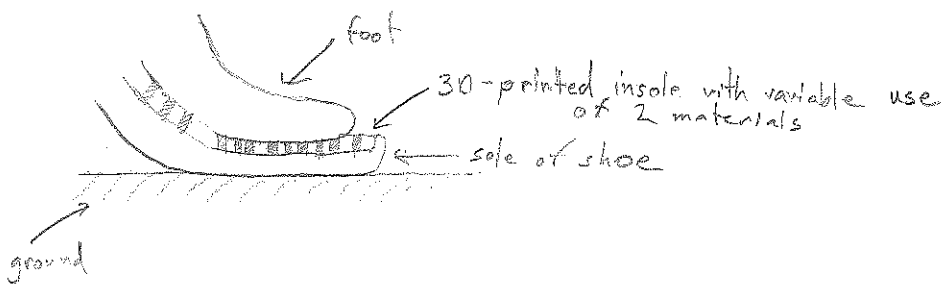 foot
3D-printed insole with variable use
of 2 materials
sole of shoe
ground